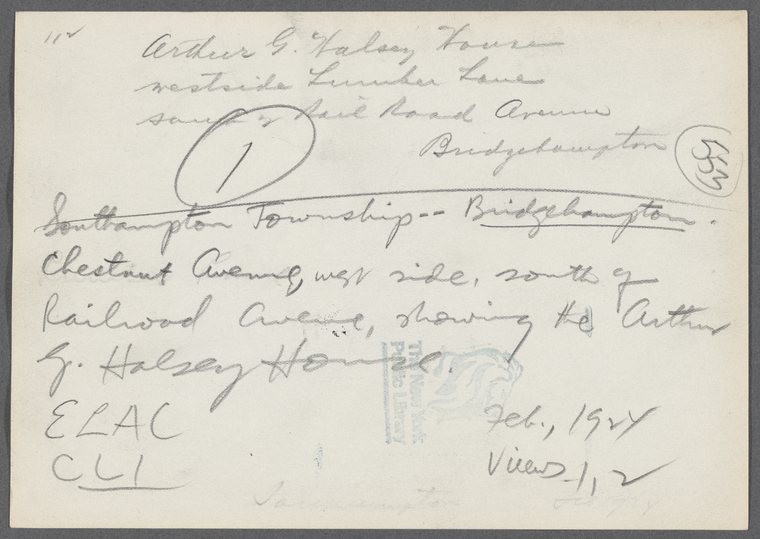 112
Arthur G. Halsey House
westside Lumber Lane
south of Rail Road Avenue
Bridgehampton
1
Southampton Township -- Bridgehampton.
Chestnut Avenue, west side, south of
Railroad Avenue, showing the Arthur
G. Halsey House.
The New York
Public Library
ELAC
CLI
Feb., 1924
Views 1, 2
Southampton